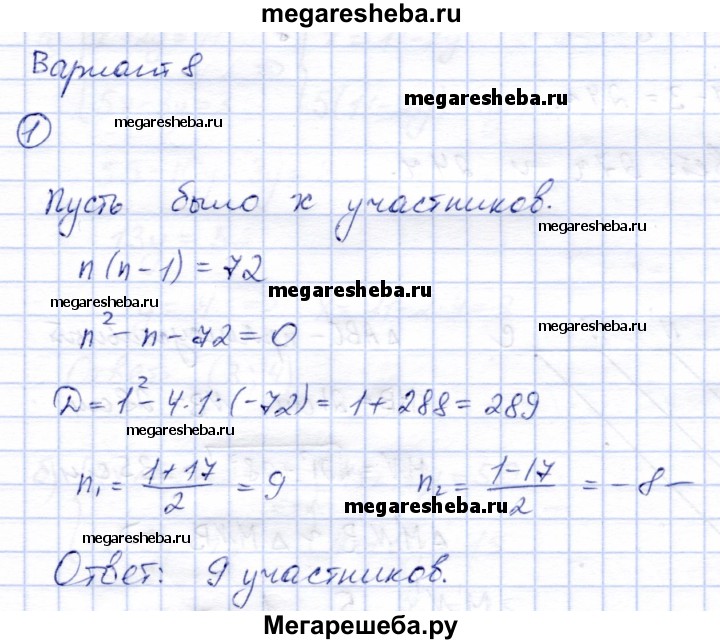 megaresheba.ru
Вариант 8
megaresheba.ru
1
megaresheba.ru
Пусть было x участников.
megaresheba.ru
n(n-1)=72
megaresheba.ru
megaresheba.ru
n²-n-72=0
megaresheba.ru
D=1²-4·1·(-72)=1+288=289
megaresheba.ru
n₁ = (1+17)/2 = 9 n₂ = (1-17)/2 = -8 -
megaresheba.ru
megaresheba.ru
Ответ: 9 участников.
Мегарешеба.ру